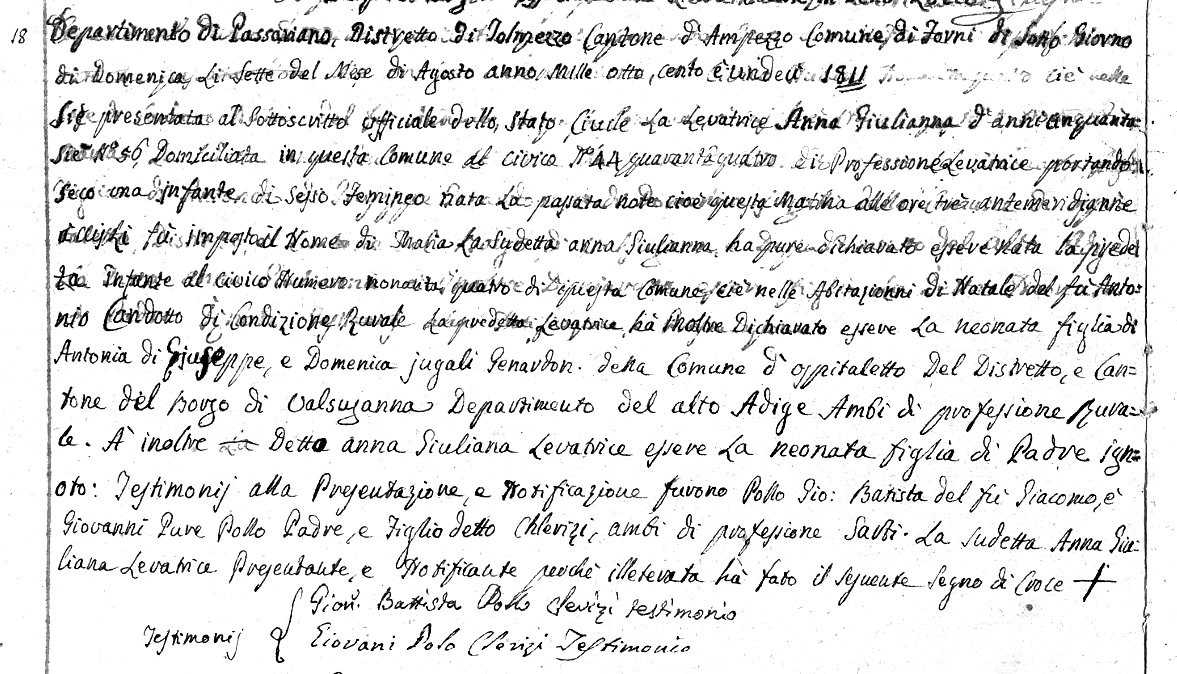 18 Departimento di Passariano, Distretto di Tolmezzo Cantone d'Ampezzo Comune di Forni di Sotto Giorno
di Domenica Li Sette del Mese di Agosto anno Mille otto, cento è undeci 1811 cie nella
si è presentata al Sottoscritto officiale dello, Stato Civile La Levatrice Anna Giulianna d'anni cinquanta
sie N° 56 Domiciliata in questa Comune al civico N° 44 quaranta quatro di Professione Levatrice portando
seco una d'infante, di sesso Femineo nata La passata note cioè questa Matina alle ore tre antemeridianne
fù imposto il Nome di Maria La Sudetta anna Giulianna, ha pure dichiavatto essere Nata la prede
ta Infante al civico Numero nonanta, quatro di questa Comune, cie nelle Abitazionni di Natale del fù Anto=
nio Candotto di Condizione Rurale La predetta Levatrice, hà Inoltre Dichiavato essere La neonata figlia di
Antonia di Giuseppe, e Domenica jugali Genardon. della Comune d'ospitaletto Del Distretto, e Can=
tone del Borgo di Valsuganna Departimento del alto Adige Ambi di professione Rura=
le. À inoltre La Detta anna Giuliana Levatrice essere La neonata figlia di Padre ign=
oto: Testimonij alla Presentazione, e Notificazione furono Pollo Gio: Batista del fù Giacomo, è
Giovanni Pure Pollo Padre, e Figlio detto Chlerizi, ambi di professione Sarti. La sudetta Anna Giu=
liana Levatrice Presentante, e Notificante perchè illeterata hà fato il seguente Segno di Croce +
Giov. Battista Polo Clerizi testimonio
Testimonij
Giovani Polo Clerizi Testimonio